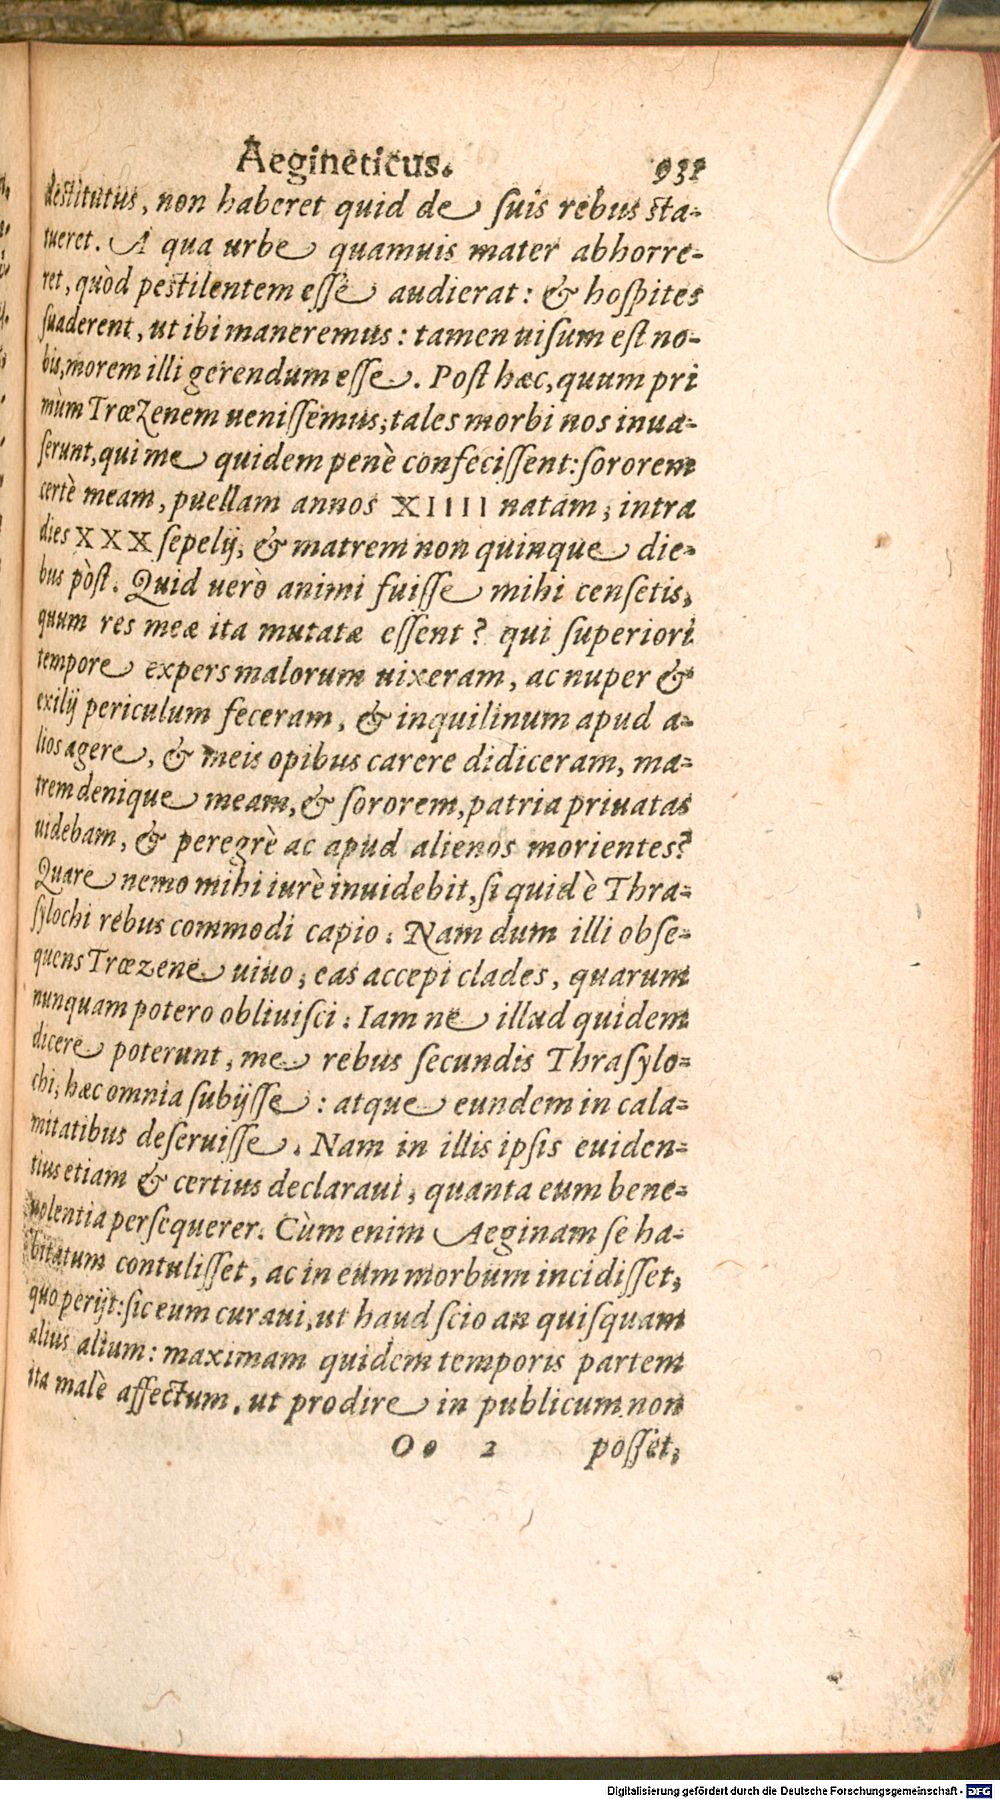 Aegineticus. 931
destitutus, non haberet quid de suis rebus sta-
tueret. A qua urbe quamuis mater abhorre-
ret, quòd pestilentem esse audierat: & hospites
suaderent, ut ibi maneremus: tamen uisum est no-
bis, morem illi gerendum esse. Post hæc, quum pri
mùm Trœzenem uenissemus, tales morbi nos inua-
serunt, qui me quidem penè confecissent: sororem
certè meam, puellam annos XIIII natam, intra
dies XXX sepelij, & matrem non quinque die-
bus pòst. Quid uerò animi fuisse mihi censetis,
quum res meæ ita mutatæ essent? qui superiori
tempore expers malorum uixeram, ac nuper &
exilij periculum feceram, & inquilinum apud a-
lios agere, & meis opibus carere didiceram, ma-
trem denique meam, & sororem, patria priuatas
uidebam, & peregrè ac apud alienos morientes?
Quare nemo mihi iurè inuidebit, si quid è Thra-
sylochi rebus commodi capio. Nam dum illi obse-
quens Trœzene uiuo, eas accepi clades, quarum
nunquam potero obliuisci. Iam ne illud quidem
dicere poterunt, me rebus secundis Thrasylo-
chi, hæc omnia subijsse: atque eundem in cala-
mitatibus deseruisse. Nam in illis ipsis euiden-
tius etiam & certius declaraui, quanta eum bene-
uolentia persequerer. Cùm enim Aeginam se ha-
bitatum contulisset, ac in eum morbum incidisset,
quo perijt: sic eum curaui, ut haud scio an quisquam
alius alium: maximam quidem temporis partem
ita malè affectum, ut prodire in publicum non
Oo 2 posset,
Digitalisierung gefördert durch die Deutsche Forschungsgemeinschaft - DFG